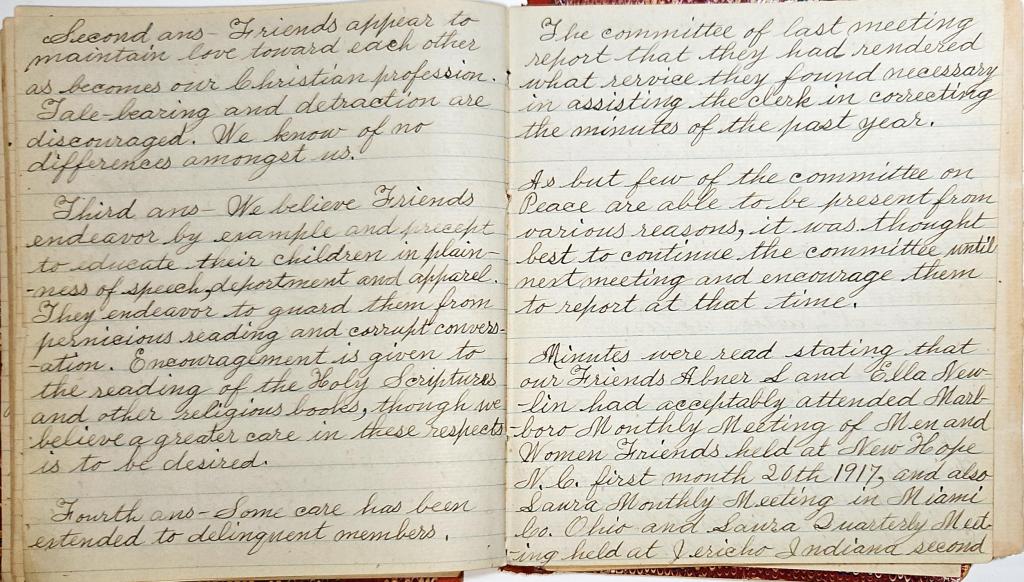 Second ans- Friends appear to
maintain love toward each other
as becomes our Christian profession.
Tale-bearing and detraction are
discouraged. We know of no
differences amongst us.
Third ans- We believe Friends
endeavor by example and precept
to educate their children in plain-
-ness of speech, deportment and apparel.
They endeavor to guard them from
pernicious reading and corrupt convers-
-ation. Encouragement is given to
the reading of the Holy Scriptures
and other religious books, though we
believe a greater care in these respects
is to be desired.
Fourth ans- Some care has been
extended to delinquent members.
The committee of last meeting
report that they had rendered
what service they found necessary
in assisting the clerk in correcting
the minutes of the past year.
As but few of the committee on
Peace are able to be present from
various reasons, it was thought
best to continue the committee until
next meeting and encourage them
to report at that time.
Minutes were read stating that
our Friends Abner L and Ella New-
-lin had acceptably attended Marl-
boro Monthly Meeting of Men and
Women Friends held at New Hope
N.C. first month 20th 1917, and also
Laura Monthly Meeting in Miami
Co. Ohio and Laura Quarterly Meet-
-ing held at Jericho Indiana second